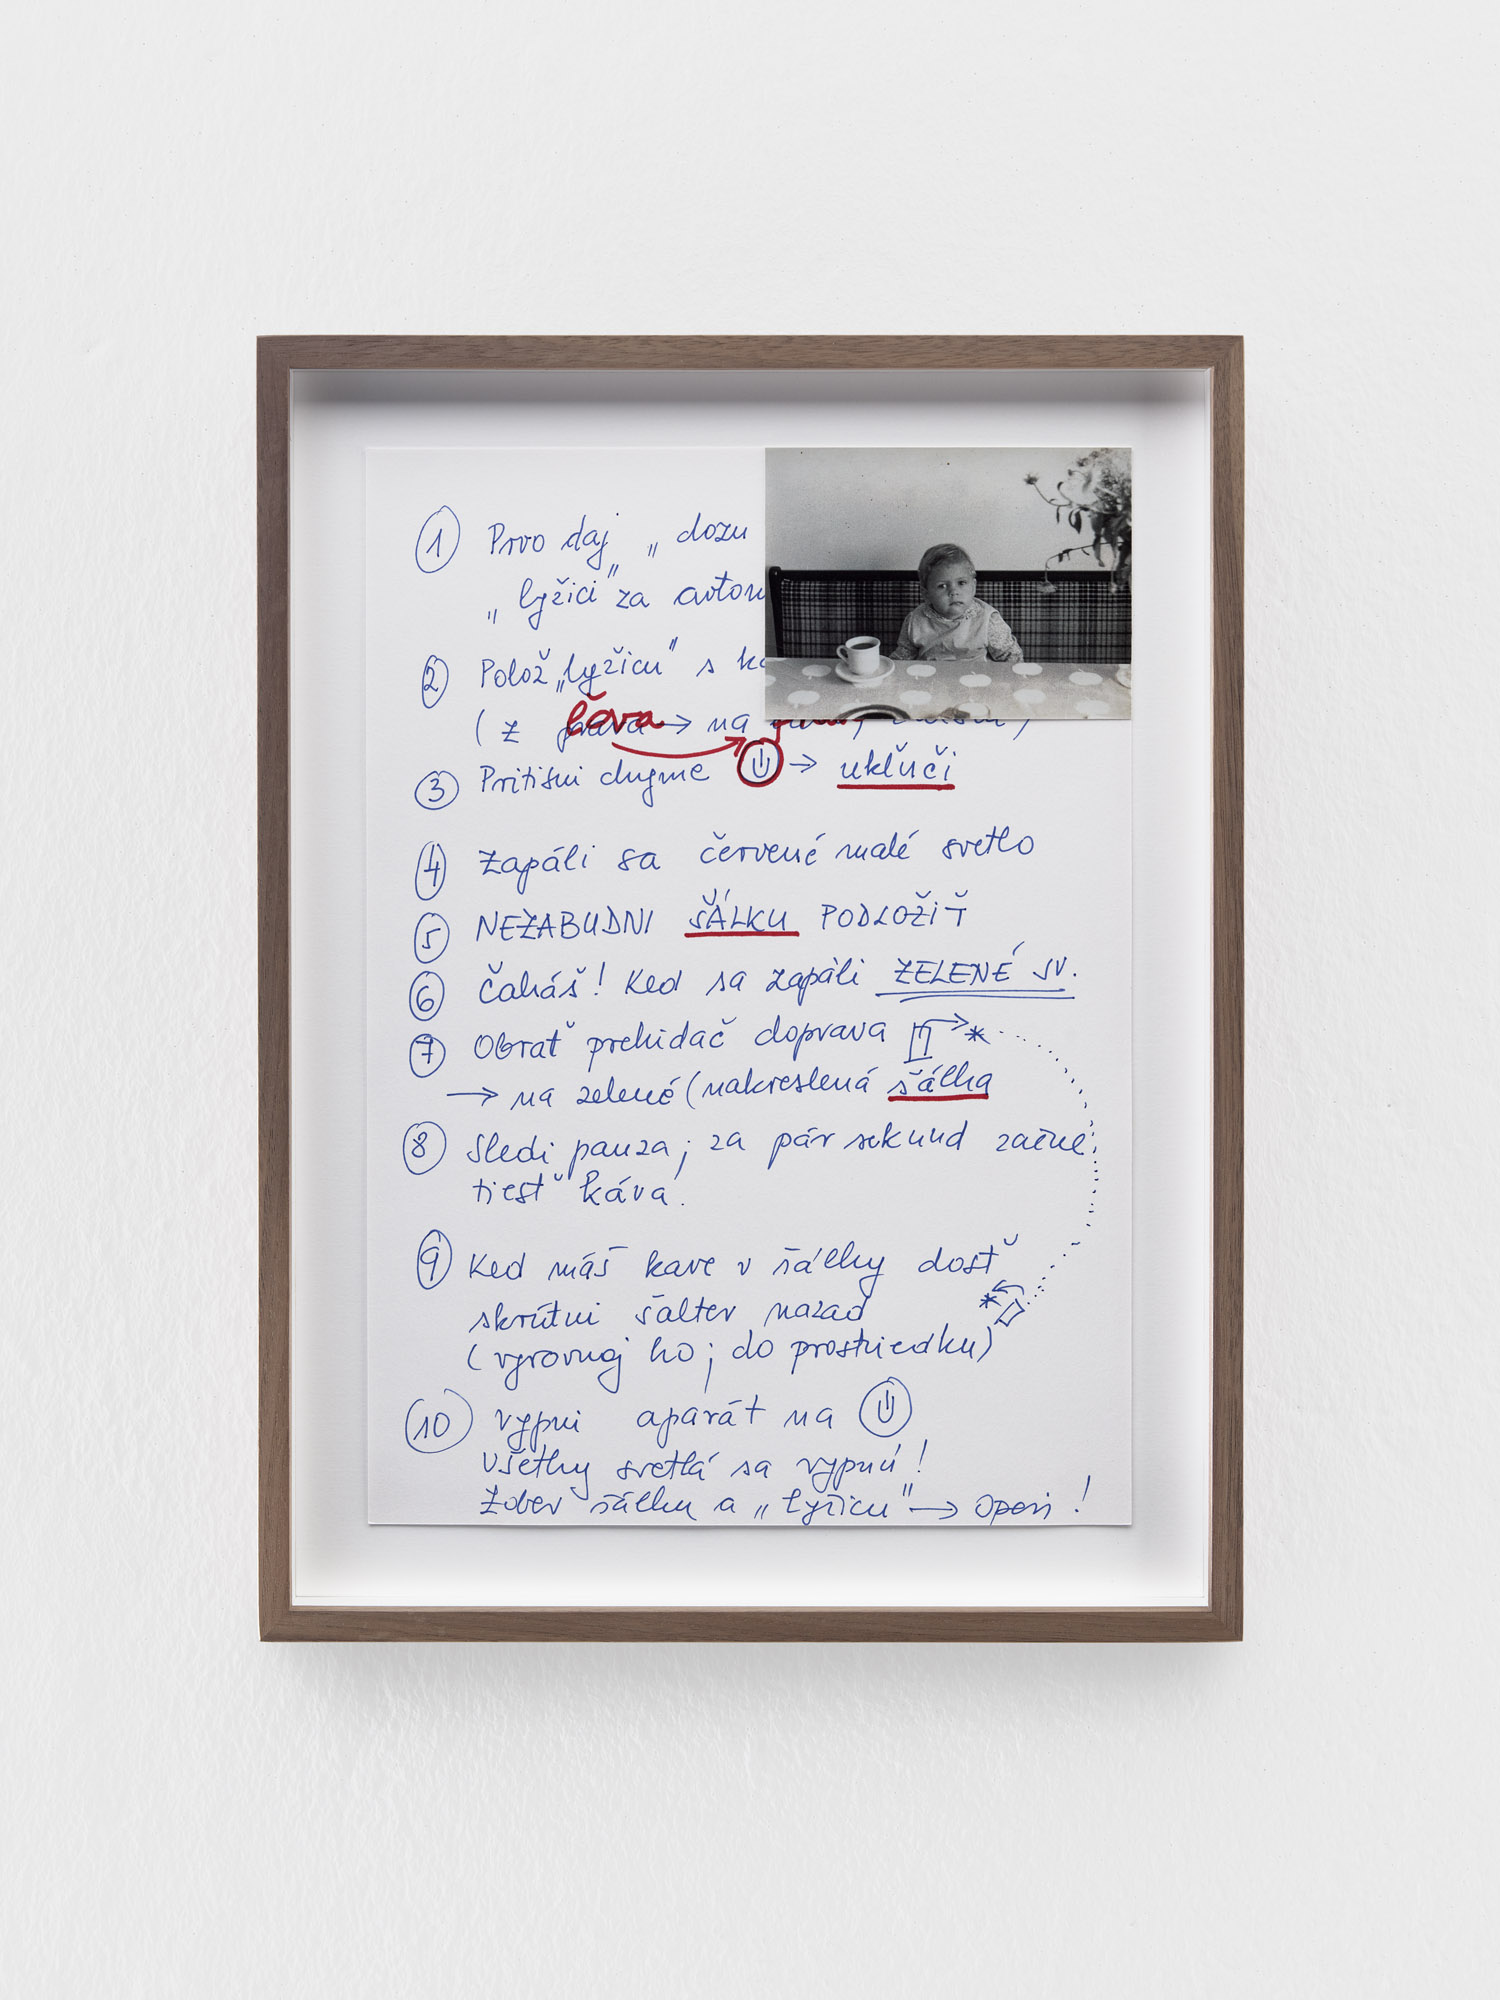 ① Prvo daj „dozu
„lyžici" za avtom
② Polož „lyžicu" s ka
(z ľava → na
③ Pritisni dugme → ukľuči
④ Zapáli sa červené malé svetlo
⑤ NEZABUDNI ŠÁLKU PODLOŽIŤ
⑥ Čakáš! Ked sa zapáli ZELENÉ SV.
⑦ Obrať prekidač doprava *
→ na zelené (nakreslená šálka
⑧ Sledi pauza; za pár sekund začne
tiesť káva.
⑨ Ked máš kave v šálky dosť
skrútni šalter nazad *
(vyrovnaj ho; do prostriedku)
⑩ vypni aparát na
Všetky svetlá sa vypnú!
Zober šálku a „lyžicu" → operi!